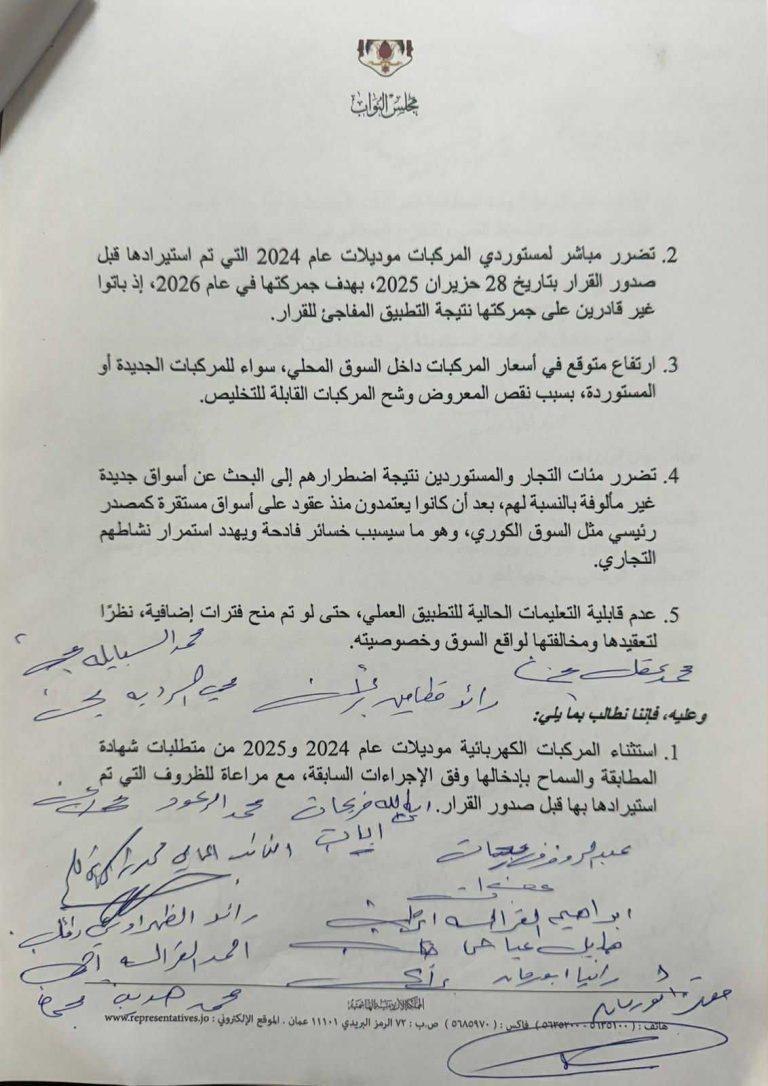 مجلس النواب
2. تضرر مباشر لمستوردي المركبات موديلات عام 2024 التي تم استيرادها قبل
صدور القرار بتاريخ 28 حزيران 2025، بهدف جمركتها في عام 2026، إذ باتوا
غير قادرين على جمركتها نتيجة التطبيق المفاجئ للقرار.
3. ارتفاع متوقع في أسعار المركبات داخل السوق المحلي، سواء للمركبات الجديدة أو
المستوردة، بسبب نقص المعروض وشح المركبات القابلة للتخليص.
4. تضرر مئات التجار والمستوردين نتيجة اضطرارهم إلى البحث عن أسواق جديدة
غير مألوفة بالنسبة لهم، بعد أن كانوا يعتمدون منذ عقود على أسواق مستقرة كمصدر
رئيسي مثل السوق الكوري، وهو ما سيسبب خسائر فادحة ويهدد استمرار نشاطهم
التجاري.
5. عدم قابلية التعليمات الحالية للتطبيق العملي، حتى لو تم منح فترات إضافية، نظرًا
لتعقيدها ومخالفتها لواقع السوق وخصوصيته.
محمد السبايله
محمد عقل
رائد قطامين
وعليه، فإننا نطالب بما يلي:
1. استثناء المركبات الكهربائية موديلات عام 2024 و2025 من متطلبات شهادة
المطابقة والسماح بإدخالها وفق الإجراءات السابقة، مع مراعاة للظروف التي تم
استيرادها بها قبل صدور القرار.
فريحات محمد الرعود
ابراهيم القرالسه رائد الظهراوي
هديل عياصره احمد القرالسه
رانيا ابورمان
محمد هديب
المملكة الأردنية الهاشمية
هاتف : ( ٥٦٣٥١٠٠ - ٥٦٣٥٢٠٠ ) فاكس : ( ٥٦٨٥٩٧٠ ) ص.ب : ٧٢ الرمز البريدي ١١١٠١ عمان . الموقع الإلكتروني : www.representatives.jo